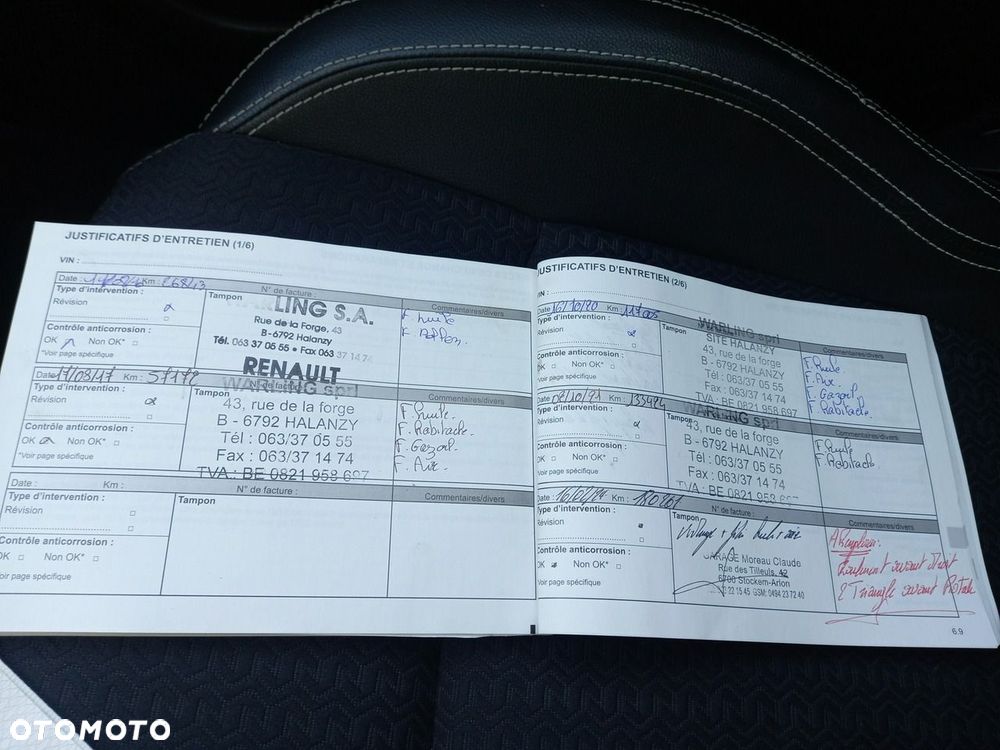 JUSTIFICATIFS D'ENTRETIEN (1/6)
VIN :
Date : Km : 26843
N° de facture :
Type d'intervention :
Tampon
Commentaires/divers
Révision
WARLING S.A.
Rue de la Forge, 43
B-6792 Halanzy
Tél. 063 37 05 55 • Fax 063 37 14 74
RENAULT
F. huile
Contrôle anticorrosion :
OK Non OK* :
*Voir page spécifique
Date : 17/08/17 Km : 57172
N° de facture :
Type d'intervention :
Tampon
Commentaires/divers
Révision
WARLING sprl
43, rue de la forge
B - 6792 HALANZY
Tél : 063/37 05 55
Fax : 063/37 14 74
TVA : BE 0821 958 697
F. huile.
F. Habitacle.
F. Gazoil.
F. Air.
Contrôle anticorrosion :
OK Non OK* :
*Voir page spécifique
Date : Km :
N° de facture :
Type d'intervention :
Tampon
Commentaires/divers
Révision
Contrôle anticorrosion :
OK Non OK* :
Voir page spécifique
JUSTIFICATIFS D'ENTRETIEN (2/6)
VIN :
Date 16/10/20 Km : 117005
Type d'intervention :
Tampon
Commentaires/divers
Révision
WARLING sprl
SITE HALANZY
43, rue de la forge
B - 6792 HALANZY
Tél : 063/37 05 55
Fax : 063/37 14 74
TVA : BE 0821 958 697
F. huile.
F. Air.
F. Gazoil
F. Habitacle.
Contrôle anticorrosion :
OK Non OK* :
Voir page spécifique
Date 08/10/21 Km : 135424
Type d'intervention :
Tampon
Commentaires/divers
Révision
WARLING sprl
43, rue de la forge
B - 6792 HALANZY
Tél : 063/37 05 55
Fax : 063/37 14 74
TVA : BE 0821 958 697
F. huile
F. Habitacle
Contrôle anticorrosion :
OK Non OK* :
*Voir page spécifique
Date : 16/02/24 Km : 180261
N° de facture :
Type d'intervention :
Tampon
Commentaires/divers
Révision
Vidange + filtre huile + air
GARAGE Moreau Claude
Rue des Tilleuls, 42
6700 Stockem-Arlon
22 15 45 GSM: 0494 23 72 40
A Remplacer:
Roulement avant Droit
2 Triangle avant Rotule
Contrôle anticorrosion :
OK Non OK* :
*Voir page spécifique
6.9
OTOMOTO